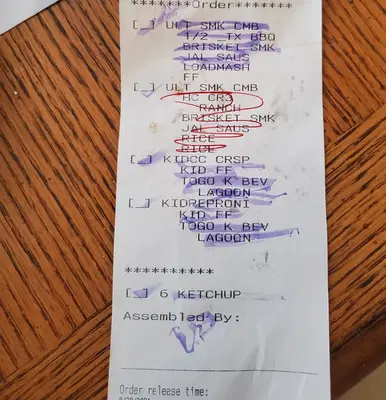 *******Order*******
[_] ULT SMK CMB
1/2 _TX BBQ
BRISKET SMK
JAL SAUS
LOADMASH
FF
[_] ULT SMK CMB
HC CR3
RANCH
BRISKET SMK
JAL SAUS
RICE
RICE
[_] KIDCC CRSP
KID FF
TOGO K BEV
LAGOON
[_] KIDREPRONI
KID FF
TOGO K BEV
LAGOON
**********
[_] 6 KETCHUP
Assembled By:
Order release time: